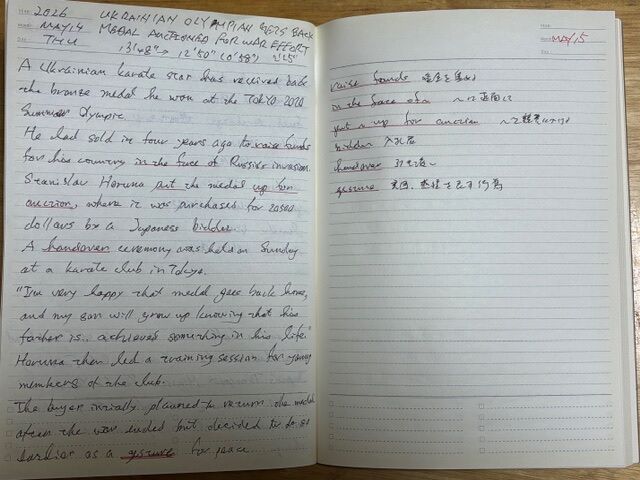 2026 UKRAINIAN OLYMPIAN GETS BACK
MAY/14 MEDAL AUCTIONED FOR WAR EFFORT
THU 13'48" → 12'50" (0'58")
A Ukrainian karate star has received back
the bronze medal he won at the Tokyo 2020
Summer Olympic.
He had sold in four years ago to raise funds
for his country in the face of Russia's invasion.
Stanislav Horuna put the medal up for
auction, where it was purchases for 20500
dollars by a Japanese bidder.
A handover ceremony was held on Sunday
at a karate club in Tokyo.
"I'm very happy that medal goes back home,
and my son will grow up knowing that his
father is.. achieved something in his life."
Horuna then led a training session for young
members of the club.
The buyer initially planned to return the medal
after the war ended but decided to do so
earlier as a gesture for peace.
MAY/15
raise funds 資金を集め
in the face of ~ ~に直面して
put ~ up for auction ~を競売にかける
bidder 入札者
handover 引き渡し
gesture